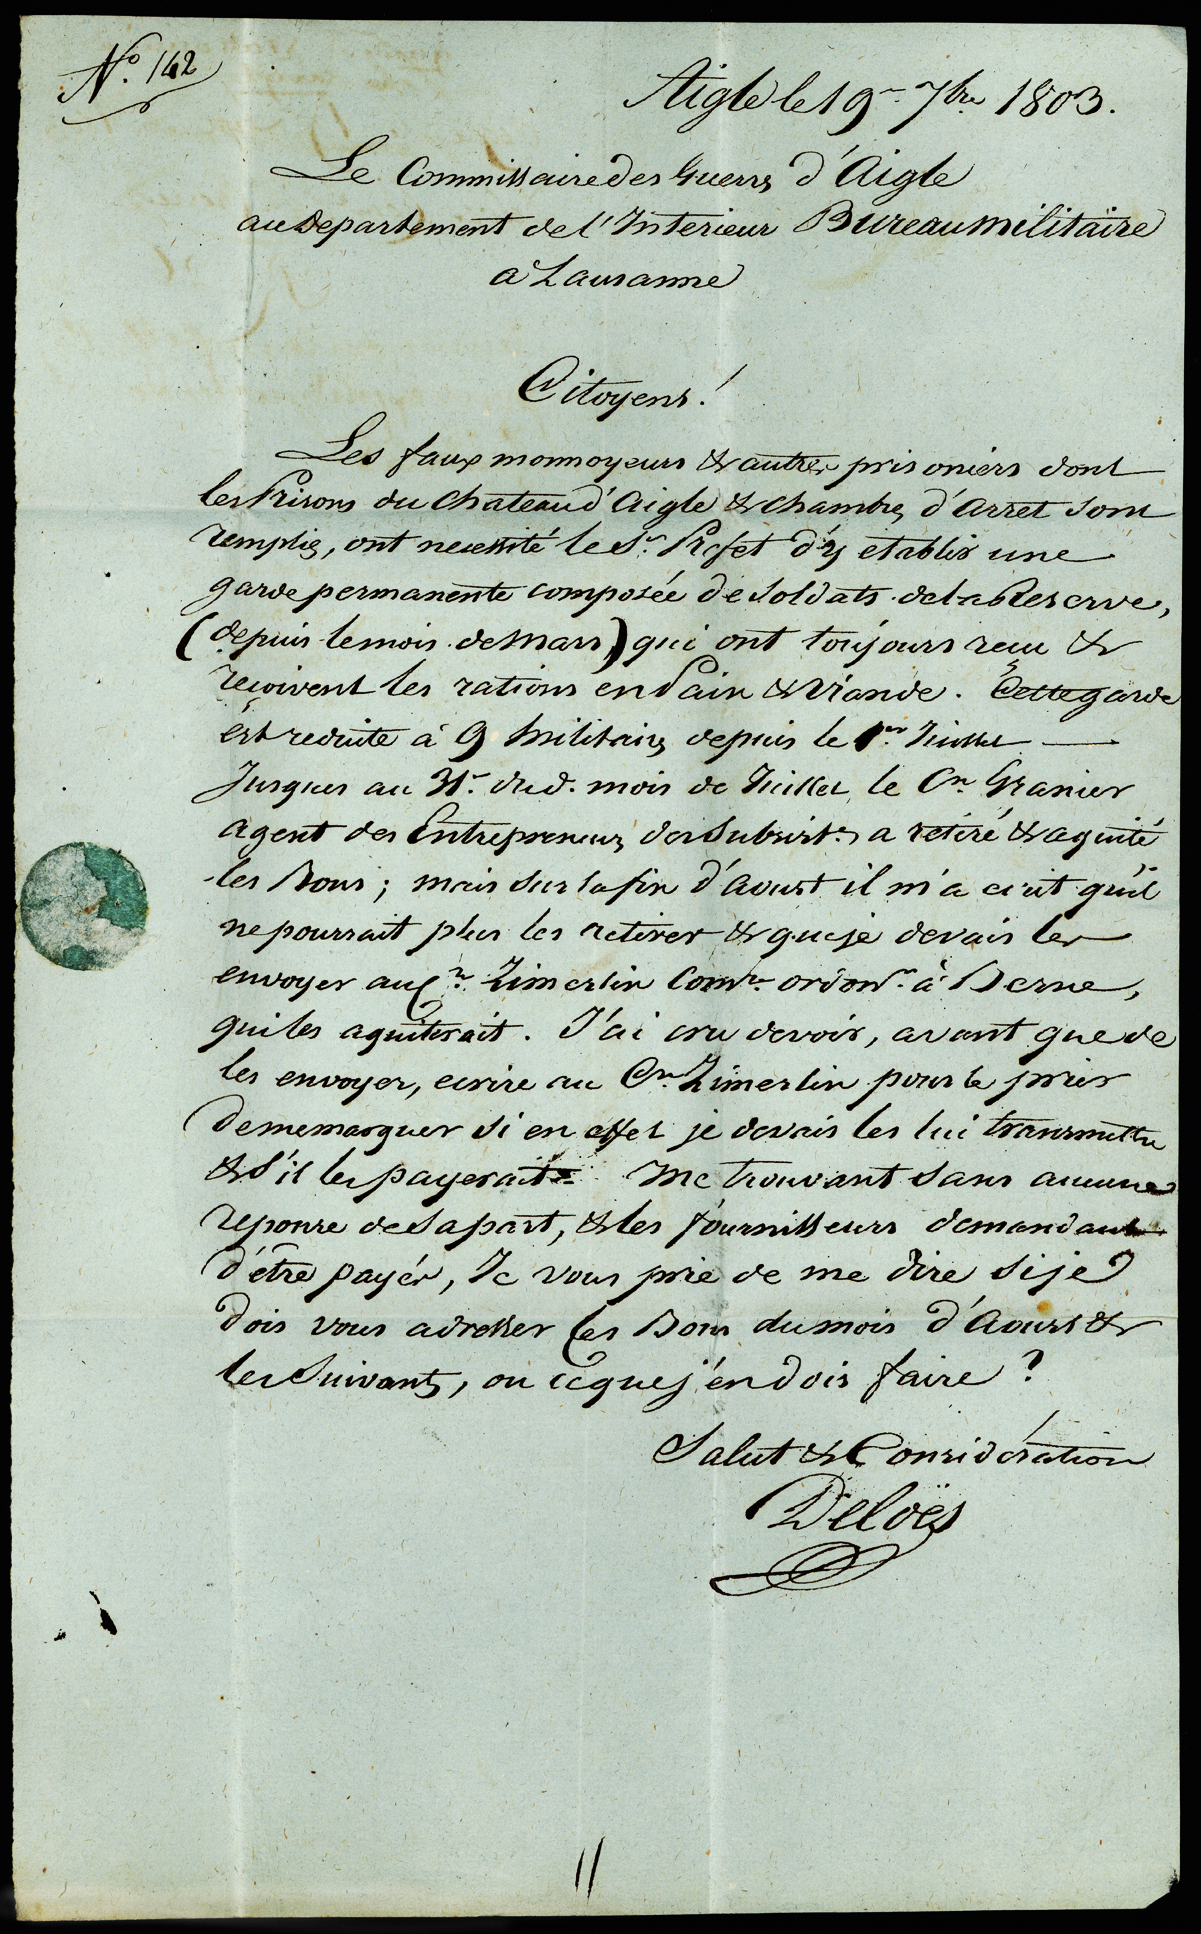 No. 142
Aigle le 19e. 7bre 1803.
Le Commissaire des Guerres d'Aigle
au Departement de l'Interieur Bureau militaire
a Lausanne
Citoyens!
Les faux monnoyeurs & autres prisoniers dont
les Prisons du Chateau d'Aigle & Chambres d'Arret sont
remplies, ont necessité le Sr. Prefet d'y etablir une
garde permanente composée de soldats de la Reserve,
(depuis le mois de Mars) qui ont toujours reçu &
reçoivent les rations en Pain & Viande. Cette garde
est reduite à 9 Militaires depuis le 1er. Juillet
Jusques au 31e. dud. mois de Juillet, le Cn. Granier
agent des Entrepreneurs des Subsist.es a retiré & aquité
les Bons; mais sur la fin d'Aoust il m'a ecrit qu'il
ne pourrait plus les retirer & que je devais les
envoyer au Cn. Zimerlin Comre. ordonr. à Berne,
qui les aquiterait. J'ai cru devoir, avant que de
les envoyer, ecrire au Cn. Zimerlin pour le prier
de me marquer si en effet je devais les lui transmettre
& s'il les payerait. Me trouvant sans aucune
reponse de sa part, & les fournisseurs demandant
d'être payés, Je vous prie de me dire si je
dois vous adresser les Bons du mois d'Aoust &
les Suivants, ou ce que j'en dois faire?
Salut & Considération
Deloës
11